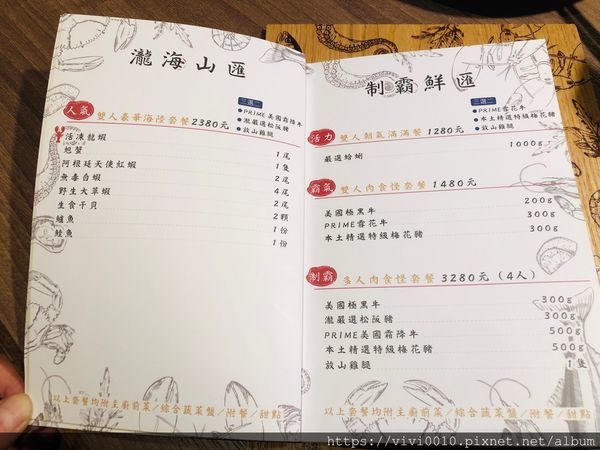 瀧海山匯
三選二
人氣 雙人豪華海陸套餐2380元
●PRIME美國霜降牛
●瀧嚴選松阪豬
●放山雞腿
活凍龍蝦 1尾
旭蟹 1隻
阿根廷天使紅蝦 2尾
無毒白蝦 4尾
野生大草蝦 2尾
生食干貝 2顆
鱸魚 1份
鮭魚 1份
以上套餐均附主廚前菜/綜合蔬菜盤/附餐/甜點
制霸鮮匯
三選二
●PRIME雪花牛
●本土精選特級梅花豬
●放山雞腿
活力 雙人朝氣滿滿餐 1280元
嚴選蛤蜊 1000g
霸氣 雙人肉食怪套餐 1480元
美國極黑牛 200g
PRIME雪花牛 300g
本土精選特級梅花豬 300g
制霸 多人肉食怪套餐 3280元(4人)
美國極黑牛 300g
瀧嚴選松阪豬 300g
PRIME美國霜降牛 500g
本土精選特級梅花豬 500g
放山雞腿 1隻
以上套餐均附主廚前菜/綜合蔬菜盤/附餐/甜點
https://vivi0010.pixnet.net/album